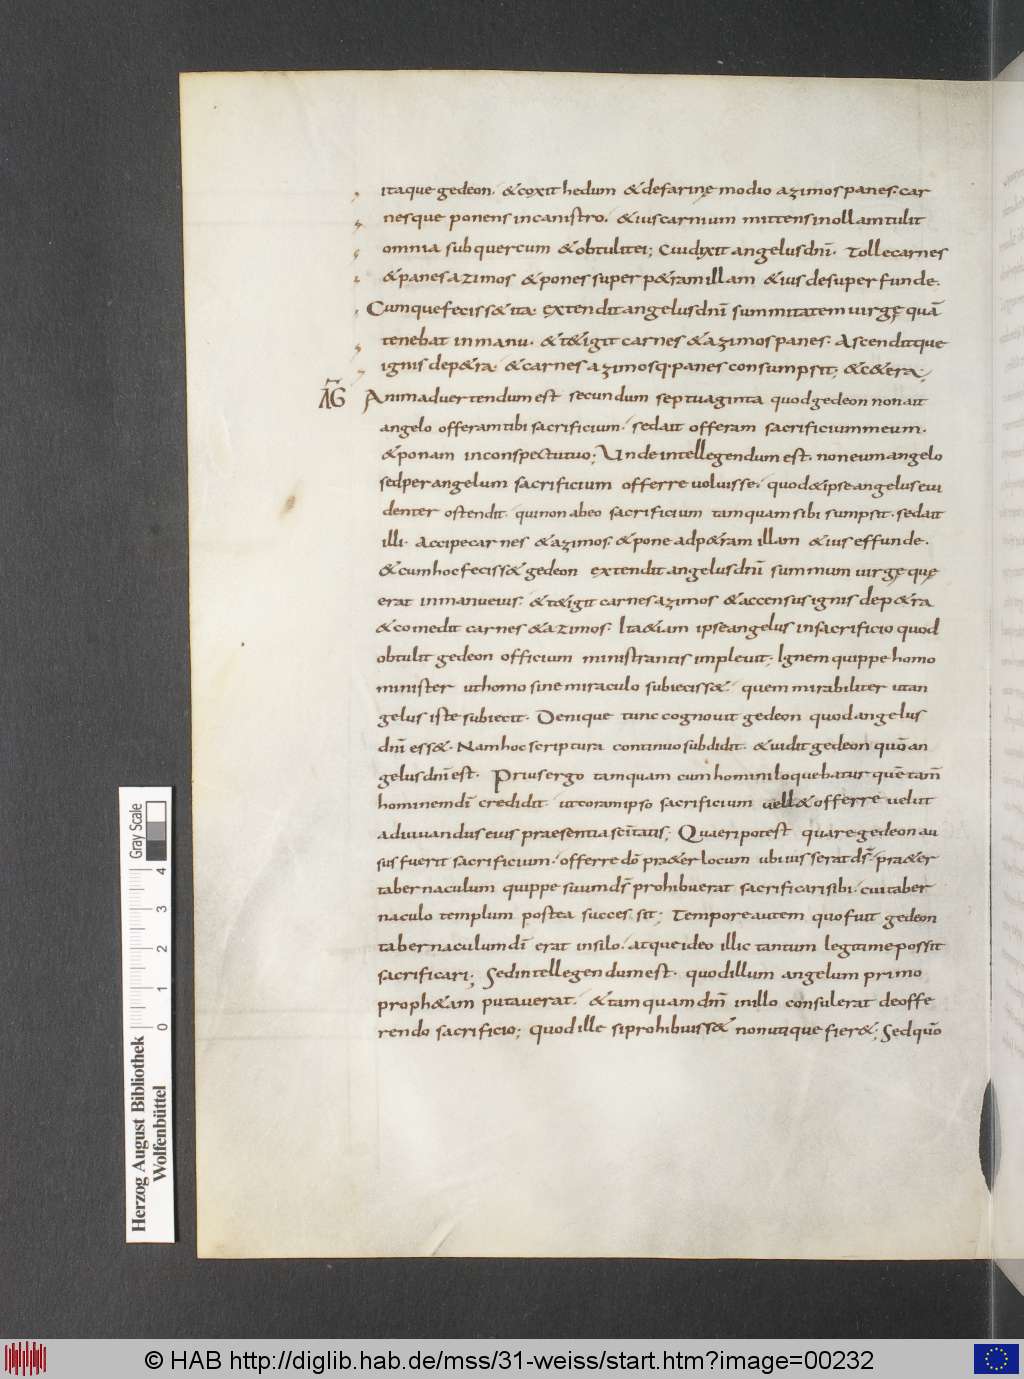 itaque gedeon. & coxit hedum & de farinę modio azimos panes. car
nesque ponens in canistro. & ius carnium mittens in ollam tulit
omnia sub quercum & obtulit ei; Cui dixit angelus dnī. Tolle carnes
& panes azimos & pones super p&ram illam & ius desuper funde.
Cumque feciss& ita. extendit angelus dnī summitatem virgę quā
tenebat in manu. & t&igit carnes & azimos panes. Ascenditque
ignis de p&ra. & carnes azimosq. panes consumpsit; & c&era;
AG Animadvertendum est secundum septuaginta quod gedeon non ait
angelo offeram tibi sacrificium. sed ait offeram sacrificium meum.
& ponam in conspectu tuo; Unde intellegendum est. non eum angelo
sed per angelum sacrificium offerre voluisse. quod & ipse angelus evi
denter ostendit. qui non ab eo sacrificium tamquam sibi sumpsit. sed ait
illi. Accipe carnes & azimos & pone ad p&ram illam & ius effunde.
& cum hoc feciss& gedeon extendit angelus dnī summum virgę quę
erat in manu eius. & t&igit carnes azimos & accensus ignis de p&ra
& comedit carnes & azimos. Ita &iam ipse angelus in sacrificio quod
obtulit gedeon officium ministrantis implevit; Ignem quippe homo
minister ut homo sine miraculo subieciss&. quem mirabiliter ut an
gelus iste subiecit. Denique tunc cognovit gedeon quod angelus
dnī ess&. Nam hoc scriptura continuo subdidit. & vidit gedeon quō an
gelus dnī est. Prius ergo tamquam cum homini loquebatur quē tam̄
hominem dī credidit. ut coram ipso sacrificium vell& offerre velut
adiuvandus eius praesentia scītatis; Quaeri potest quare gedeon au
sus fuerit sacrificium. offerre dō pra&er locum ubi iusserat ds̄. pra&er
tabernaculum quippe suum ds̄ prohibuerat sacrificari sibi. cui taber
naculo templum postea successit; Tempore autem quo fuit gedeon
tabernaculum dī erat in silo. atque ideo illic tantum legitime possit
sacrificari; Sed intellegendum est. quod illum angelum primo
proph&am putaverat. & tamquam dnm̄ in illo consulerat de offe
rendo sacrificio; quod ille si prohibuiss& non utique fier&; Sed quō
Gray Scale
0 1 2 3 4
Herzog August Bibliothek
Wolfenbüttel
© HAB http://diglib.hab.de/mss/31-weiss/start.htm?image=00232